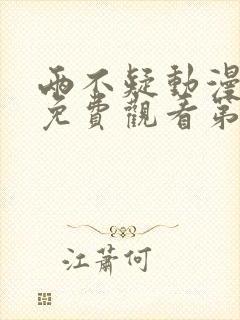 兩不疑動漫
免費觀看第
江蕭何